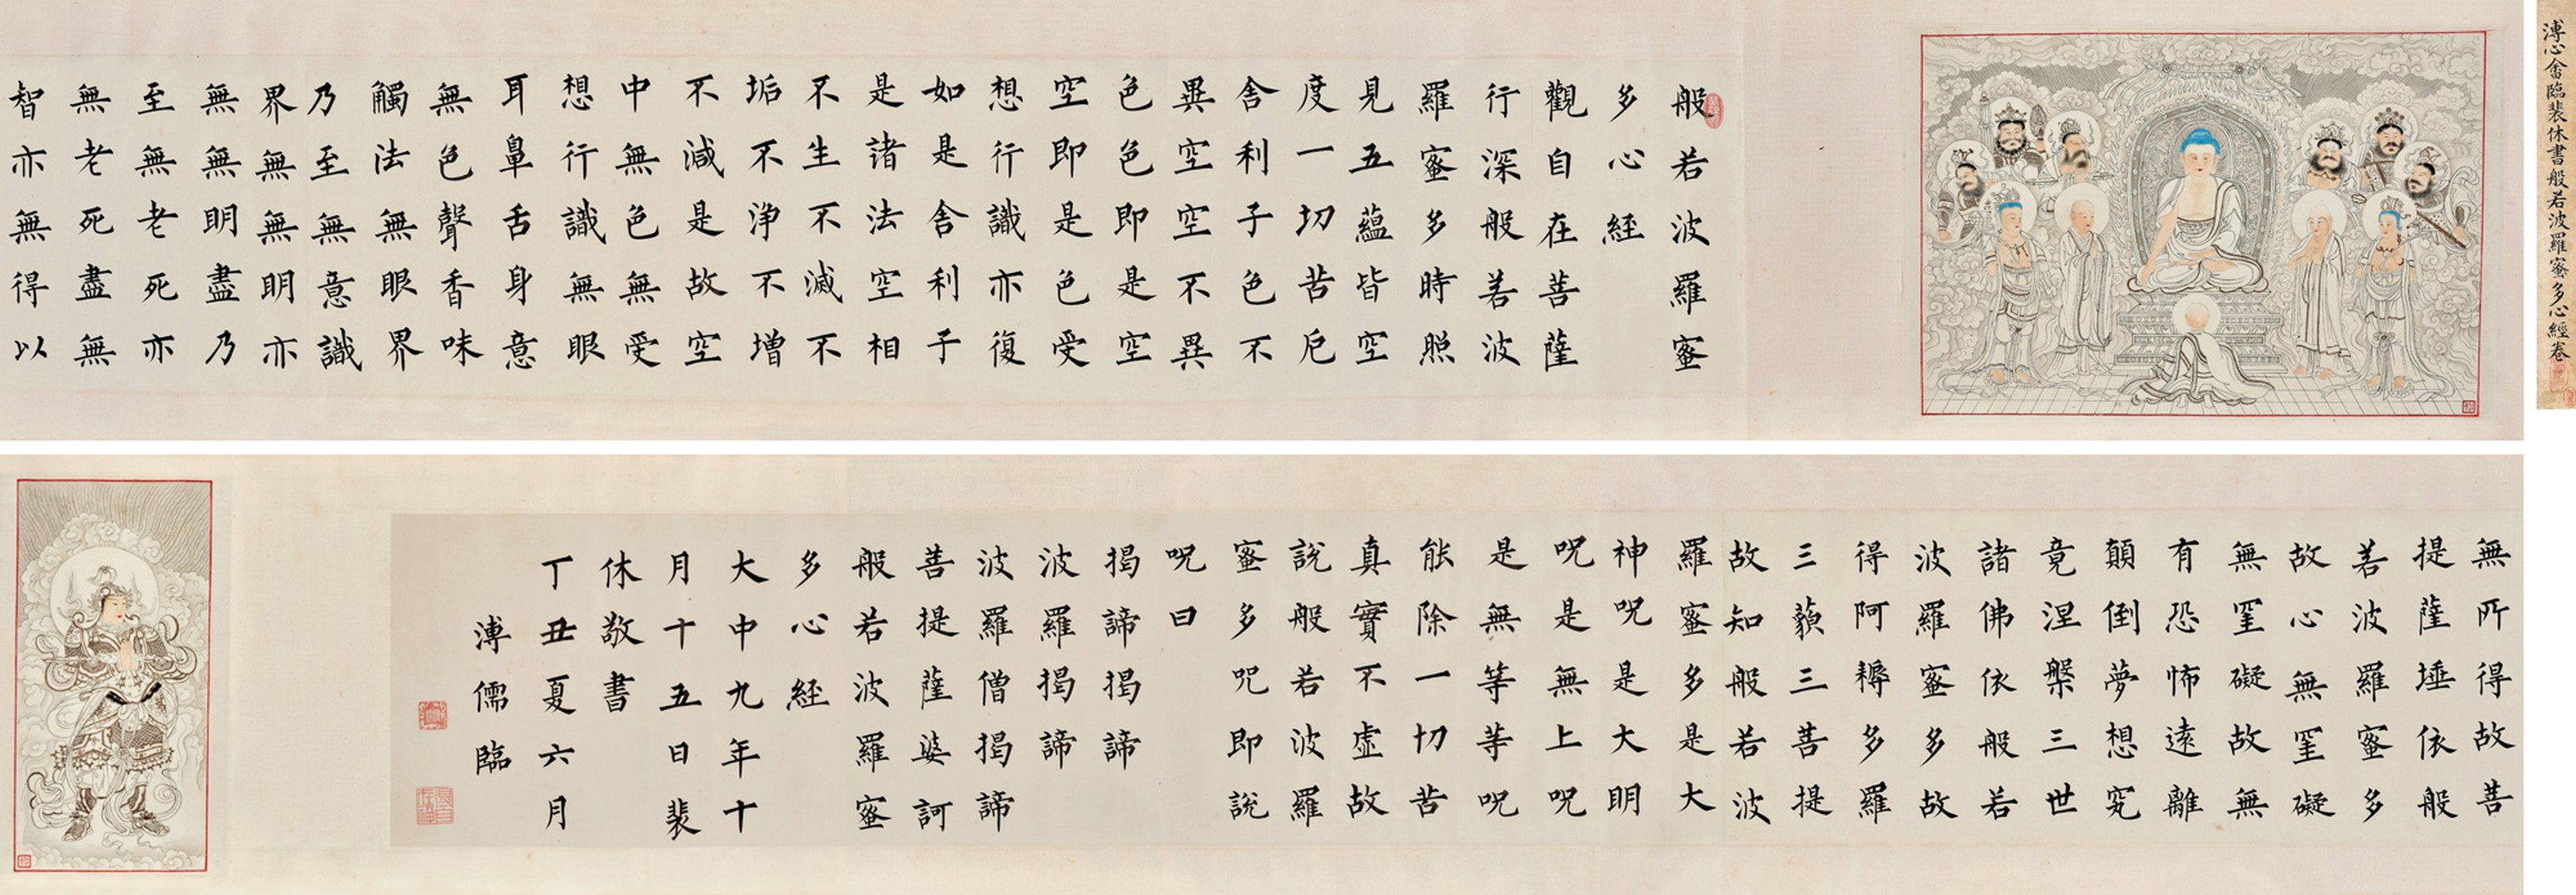 溥心畬臨裴休書般若波羅蜜多心經卷
般若波羅蜜
多心経
觀自在菩薩
行深般若波
羅蜜多時照
見五蘊皆空
度一切苦厄
舍利子色不
異空空不異
色色即是空
空即是色受
想行識亦復
如是舍利子
是諸法空相
不生不滅不
垢不淨不增
不減是故空
中無色無受
想行識無眼
耳鼻舌身意
無色聲香味
觸法無眼界
乃至無意識
界無無明亦
無無明盡乃
至無老死亦
無老死盡無
智亦無得以
無所得故菩
提薩埵依般
若波羅蜜多
故心無罣礙
無罣礙故無
有恐怖遠離
顛倒夢想究
竟涅槃三世
諸佛依般若
波羅蜜多故
得阿耨多羅
三藐三菩提
故知般若波
羅蜜多是大
神呪是大明
呪是無上呪
是無等等呪
能除一切苦
真實不虛故
說般若波羅
蜜多呪即說
呪曰
揭諦揭諦
波羅揭諦
波羅僧揭諦
菩提薩婆訶
般若波羅蜜
多心経
大中九年十
月十五日裴
休敬書
丁丑夏六月
溥儒臨